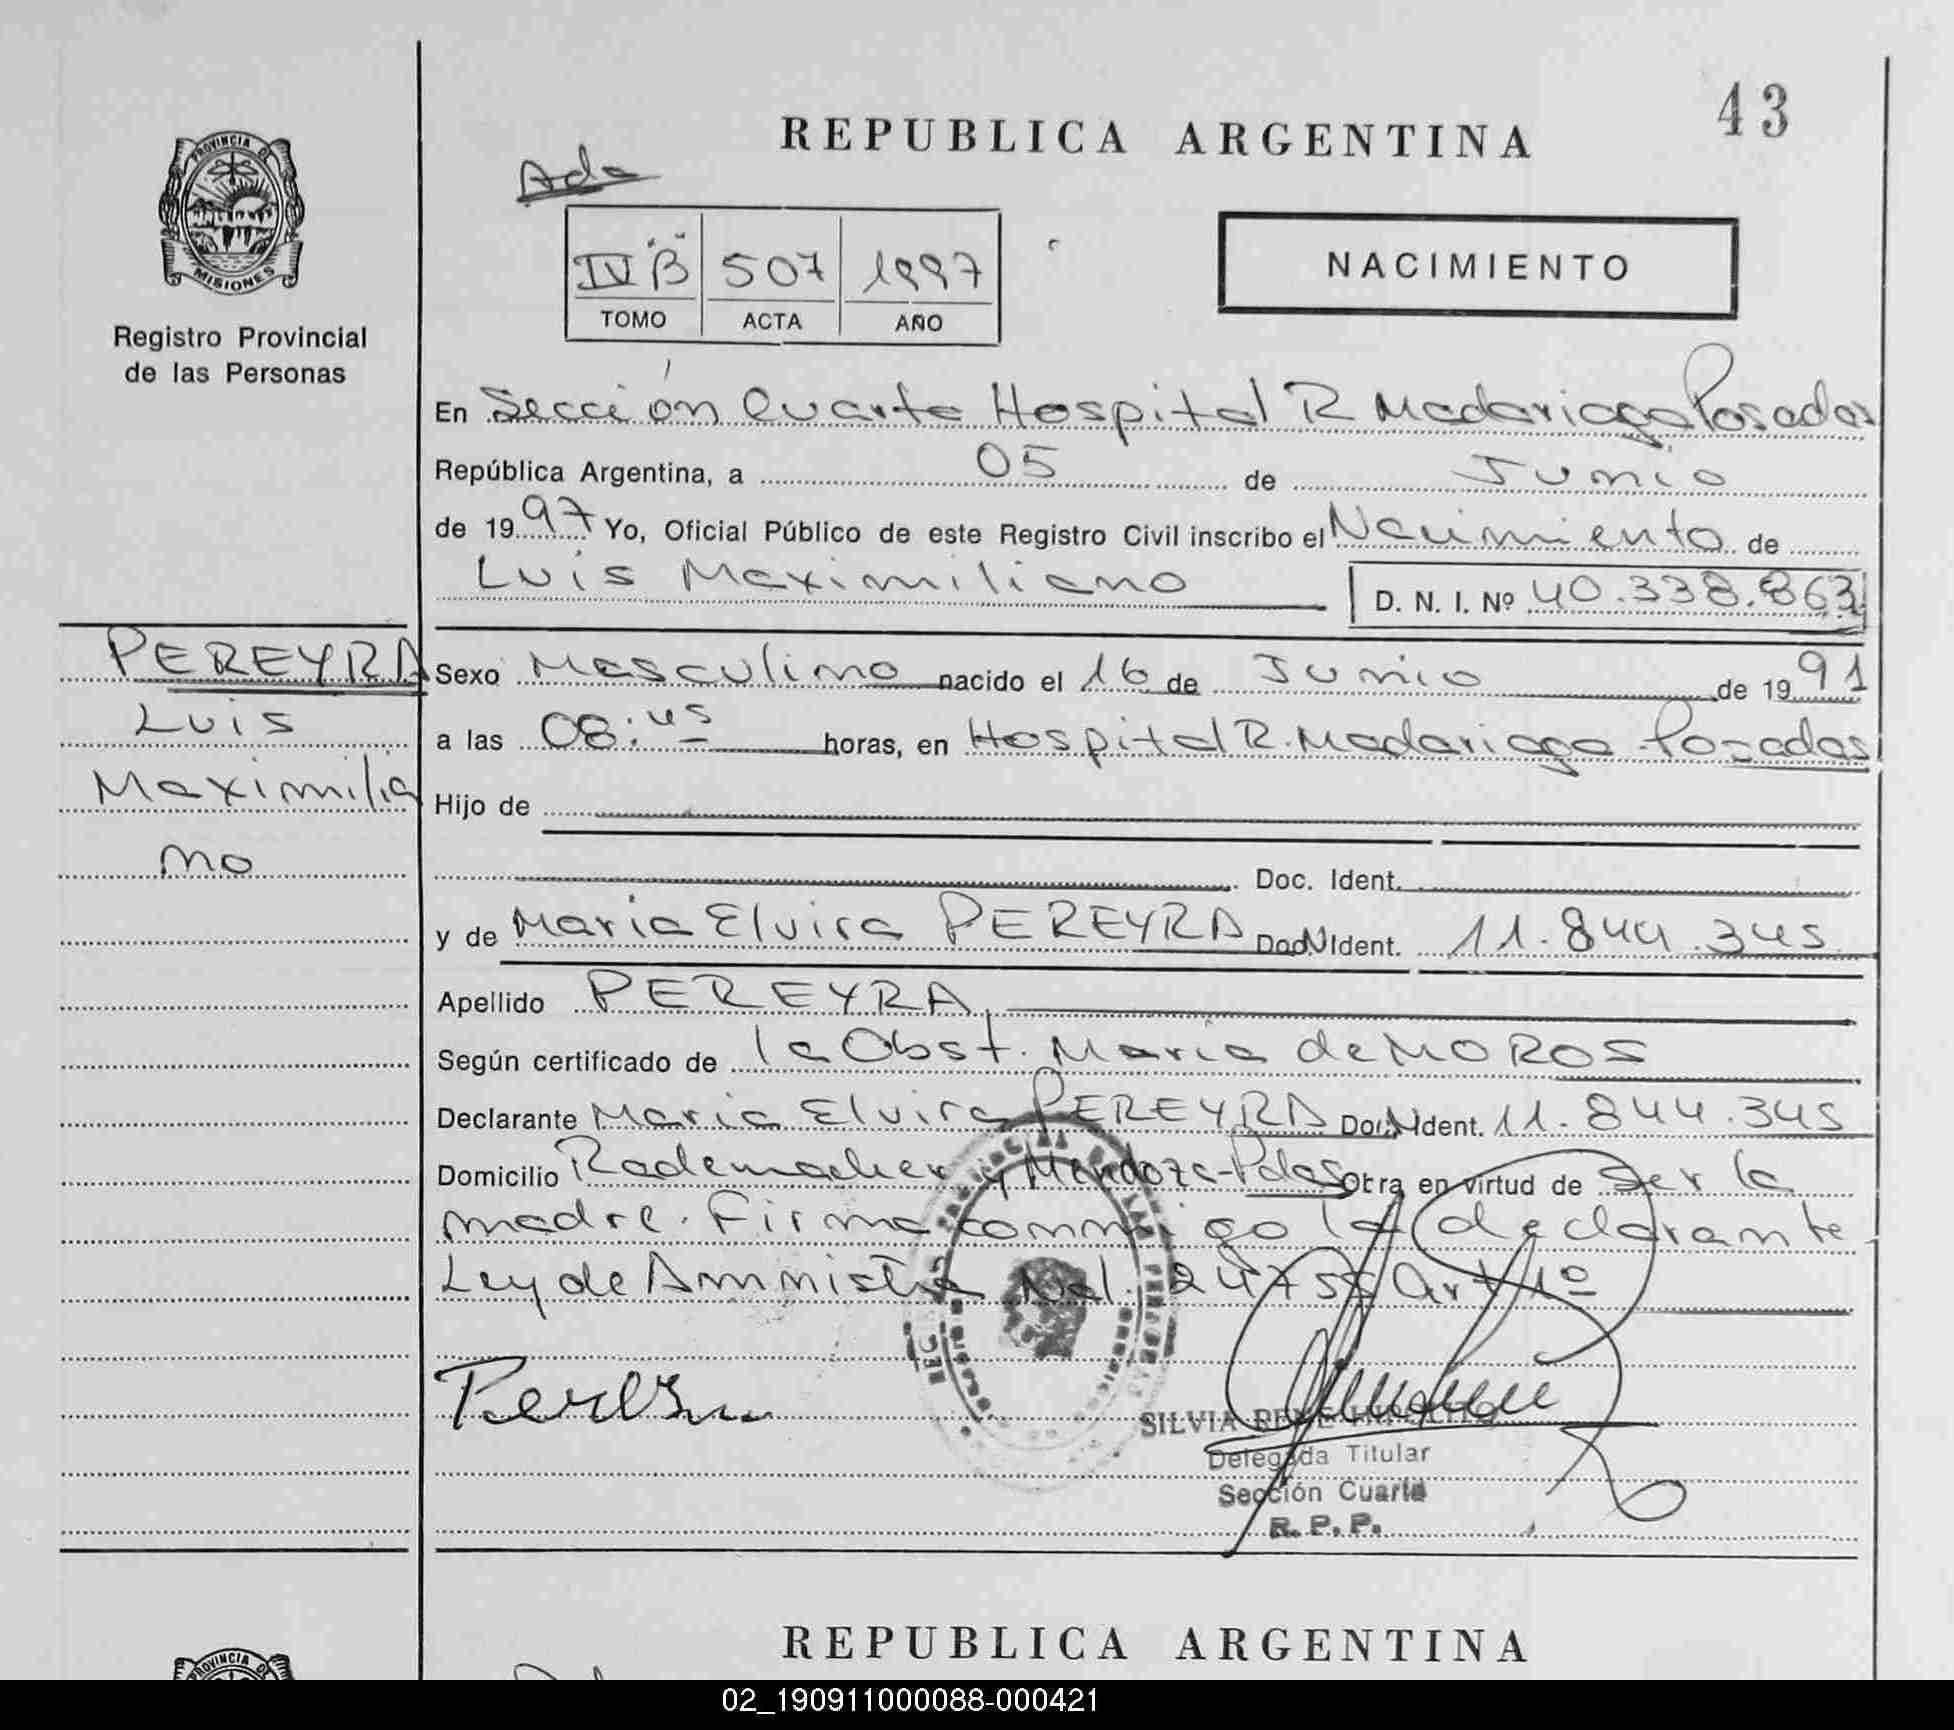 43
REPUBLICA ARGENTINA
PROVINCIA DE
MISIONES
Registro Provincial
de las Personas
IV "B" 507 1997
TOMO ACTA AÑO
NACIMIENTO
En Sección Cuarta Hospital R Madariaga Posadas
República Argentina, a 05 de Junio
de 1997 Yo, Oficial Público de este Registro Civil inscribo el Nacimiento de
Luis Maximiliano D. N. I. Nº 40.338.863
PEREYRA
Luis
Maximilia
no
Sexo Masculino nacido el 16 de Junio de 1991
a las 08:45 horas, en Hospital R. Madariaga Posadas
Hijo de
Doc. Ident.
y de Maria Elvira PEREYRA Doc. Ident. 11.844.345
Apellido PEREYRA
Según certificado de la Obst. Maria de MOROS
Declarante Maria Elvira PEREYRA Doc. Ident. 11.844.345
Domicilio Rademacher y Mendoza-Pdas Otra en virtud de ser la
madre. Firma conmigo la declarante
Ley de Amnistia Nal. 24755 Art 1º
SILVIA RENE
Delegada Titular
Sección Cuarta
R. P. P.
REPUBLICA ARGENTINA
PROVINCIA DE
02_190911000088-000421